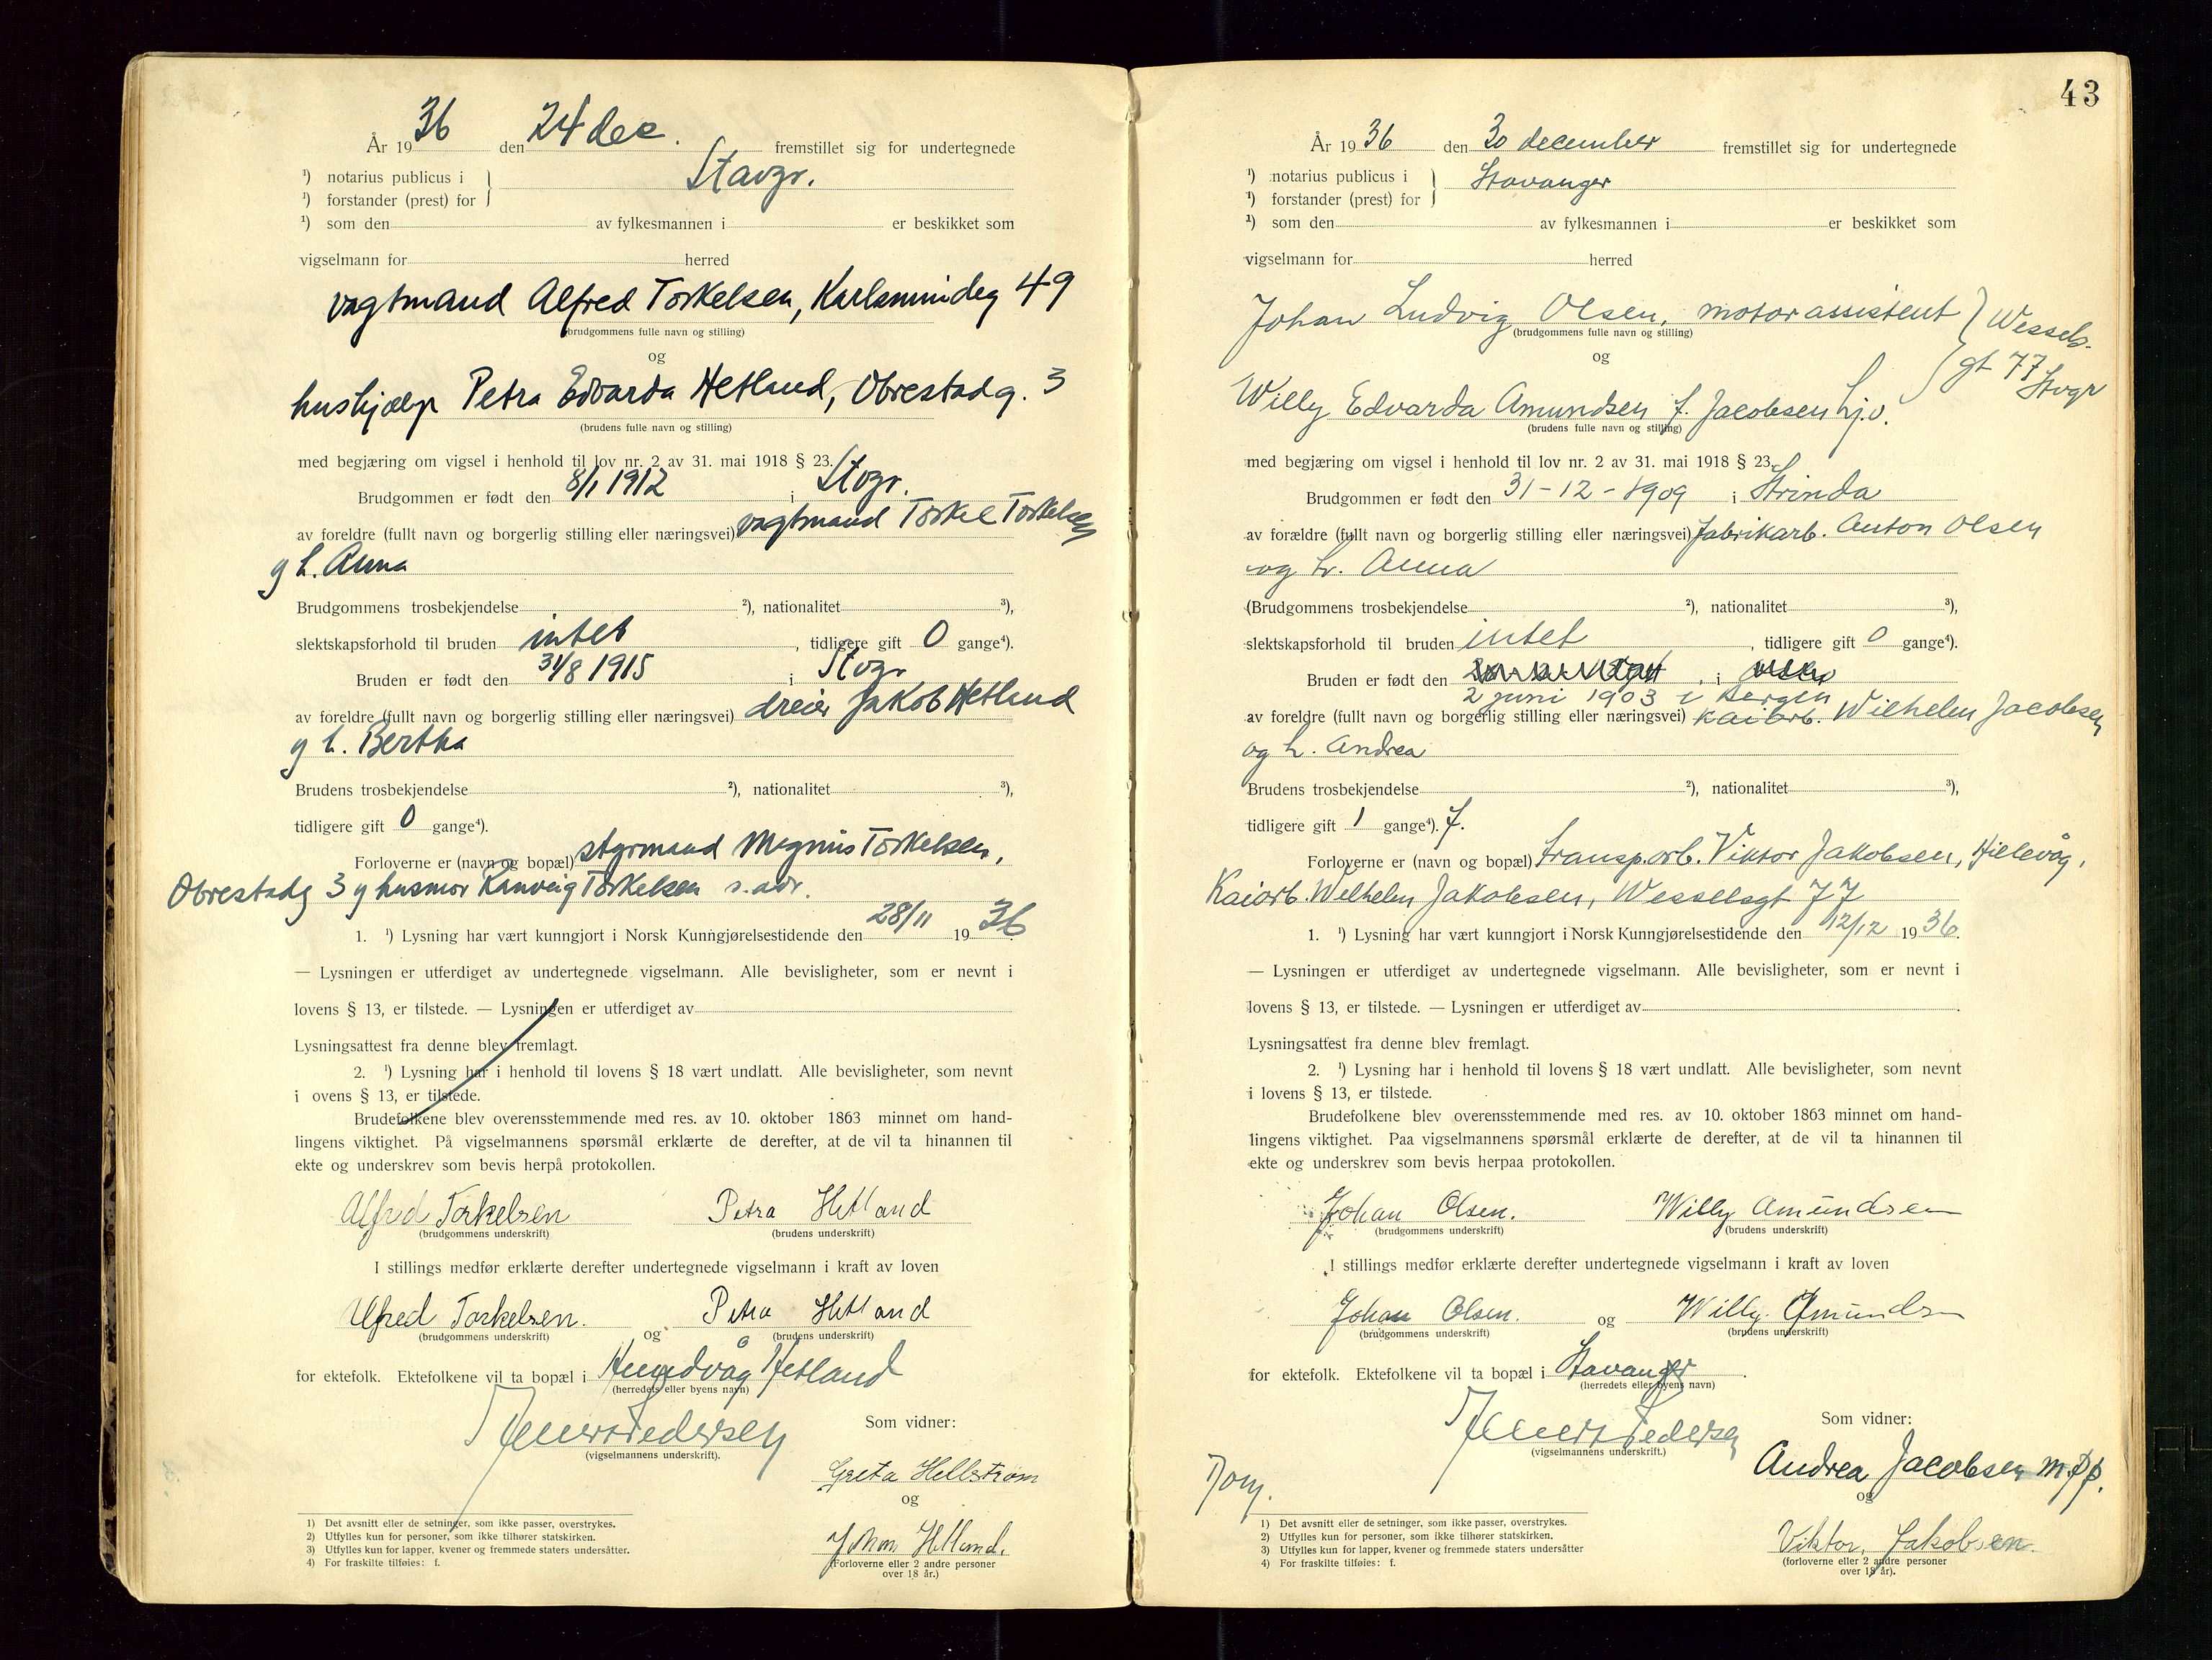 År 1936 den 24 dec. fremstillet sig for undertegnede
¹) notarius publicus i } Stavgr.
¹) forstander (prest) for
¹) som den av fylkesmannen i er beskikket som
vigselmann for herred
vagtmand Alfred Torkelsen, Karlsmindeg 49
(brudgommens fulle navn og stilling)
og
hushjælp Petra Edvarda Hetland, Obrestadg. 3
(brudens fulle navn og stilling)
med begjæring om vigsel i henhold til lov nr. 2 av 31. mai 1918 § 23.
Brudgommen er født den 8/1 1912 i Stvgr.
av foreldre (fullt navn og borgerlig stilling eller næringsvei) vagtmand Torkel Torkelsen
og h. Anna
Brudgommens trosbekjendelse ²), nationalitet ³),
slektskapsforhold til bruden intet, tidligere gift 0 gange⁴).
Bruden er født den 31/8 1915 i Stvgr
av foreldre (fullt navn og borgerlig stilling eller næringsvei) dreier Jakob Hetland
og h. Bertha
Brudens trosbekjendelse ²), nationalitet ³),
tidligere gift 0 gange⁴).
Forloverne er (navn og bopæl) styrmand Magnus Torkelsen,
Obrestadg 3 og husmor Ranveig Torkelsen s. adr.
1. ¹) Lysning har vært kunngjort i Norsk Kunngjørelsestidende den 28/11 1936.
— Lysningen er utferdiget av undertegnede vigselmann. Alle bevisligheter, som er nevnt i
lovens § 13, er tilstede. — Lysningen er utferdiget av
Lysningsattest fra denne blev fremlagt.
2. ¹) Lysning har i henhold til lovens § 18 vært undlatt. Alle bevisligheter, som nevnt
i ovens § 13, er tilstede.
Brudefolkene blev overensstemmende med res. av 10. oktober 1863 minnet om hand-
lingens viktighet. På vigselmannens spørsmål erklærte de derefter, at de vil ta hinannen til
ekte og underskrev som bevis herpå protokollen.
Alfred Torkelsen Petra Hetland
(brudgommens underskrift) (brudens underskrift)
I stillings medfør erklærte derefter undertegnede vigselmann i kraft av loven
Alfred Torkelsen. og Petra Hetland
(brudgommens underskrift) (brudens underskrift)
for ektefolk. Ektefolkene vil ta bopæl i Hundvåg Hetland
(herredets eller byens navn)
Som vidner:
(vigselmannens underskrift).
Greta Hellstrøm
og
Johan Hetland.
(Forloverne eller 2 andre personer
over 18 år.)
1) Det avsnitt eller de setninger, som ikke passer, overstrykes.
2) Utfylles kun for personer, som ikke tilhører statskirken.
3) Utfylles kun for lapper, kvener og fremmede staters undersåtter.
4) For fraskilte tilføies: f.
43
År 1936 den 30 december fremstillet sig for undertegnede
¹) notarius publicus i } Stavanger
¹) forstander (prest) for
¹) som den av fylkesmannen i er beskikket som
vigselmann for herred
Johan Ludvig Olsen, motorassistent } Wessels-
(brudgommens fulle navn og stilling)
og gt 77 Stvgr
Willy Edvarda Amundsen f. Jacobsen hj.v.
(brudens fulle navn og stilling)
med begjæring om vigsel i henhold til lov nr. 2 av 31. mai 1918 § 23.
Brudgommen er født den 31-12-1909 i Strinda
av forældre (fullt navn og borgerlig stilling eller næringsvei) fabrikarb. Anton Olsen
og h. Anna
(Brudgommens trosbekjendelse ²), nationalitet ³),
slektskapsforhold til bruden intet, tidligere gift 0 gange⁴).
Bruden er født den i
2 juni 1903 i Bergen
av foreldre (fullt navn og borgerlig stilling eller næringsvei) kaiarb. Wilhelm Jacobsen
og h. Andrea
Brudens trosbekjendelse ²), nationalitet ³),
tidligere gift 1 gange⁴). f.
Forloverne er (navn og bopæl) transp.arb. Viktor Jakobsen, Hillevåg,
Kaiarb. Wilhelm Jakobsen, Wesselsgt 77
1. ¹) Lysning har vært kunngjort i Norsk Kunngjørelsestidende den 12/12 1936.
— Lysningen er utferdiget av undertegnede vigselmann. Alle bevisligheter, som er nevnt i
lovens § 13, er tilstede. — Lysningen er utferdiget av
Lysningsattest fra denne blev fremlagt.
2. ¹) Lysning har i henhold til lovens § 18 vært undlatt. Alle bevisligheter, som nevnt
i lovens § 13, er tilstede.
Brudefolkene blev overensstemmende med res. av 10. oktober 1863 minnet om hand-
lingens viktighet. Paa vigselmannens spørsmål erklærte de derefter, at de vil ta hinannen til
ekte og underskrev som bevis herpaa protokollen.
Johan Olsen. Willy Amundsen
(brudgommens underskrift) (brudens underskrift)
I stillings medfør erklærte derefter undertegnede vigselmann i kraft av loven
Johan Olsen. og Willy Amundsen
(brudgommens underskrift) (brudens underskrift)
for ektefolk. Ektefolkene vil ta bopæl i Stavanger.
(herredets eller byens navn)
Som vidner:
(vigselmannens underskrift.)
Andrea Jacobsen m.p.p.
og
Viktor Jakobsen
(forloverne eller 2 andre personer
over 18 år).
1) Det avsnitt eller de setninger, som ikke passer, overstrykes.
2) Utfylles kun for personer, som ikke tilhører statskirken.
3) Utfylles kun for lapper, kvener og fremmede staters undersåtter
4) For fraskilte tilføies: f.